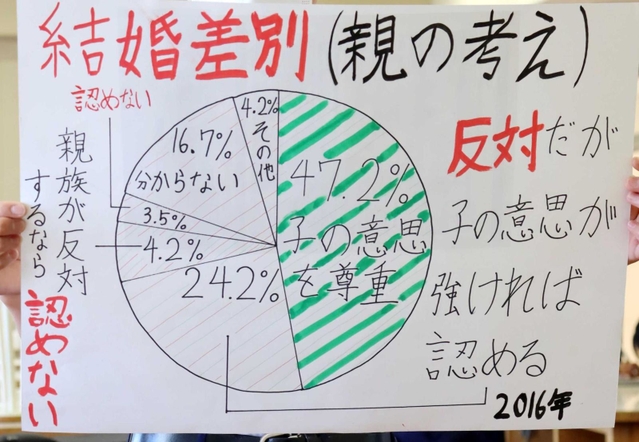 結婚差別(親の考え)
4.2%
その他
16.7%
分からない
認めない
3.5%
親族が反対
するなら
認めない
4.2%
24.2%
47.2%
子の意思
を尊重
反対だが
子の意思が
強ければ
認める
2016年